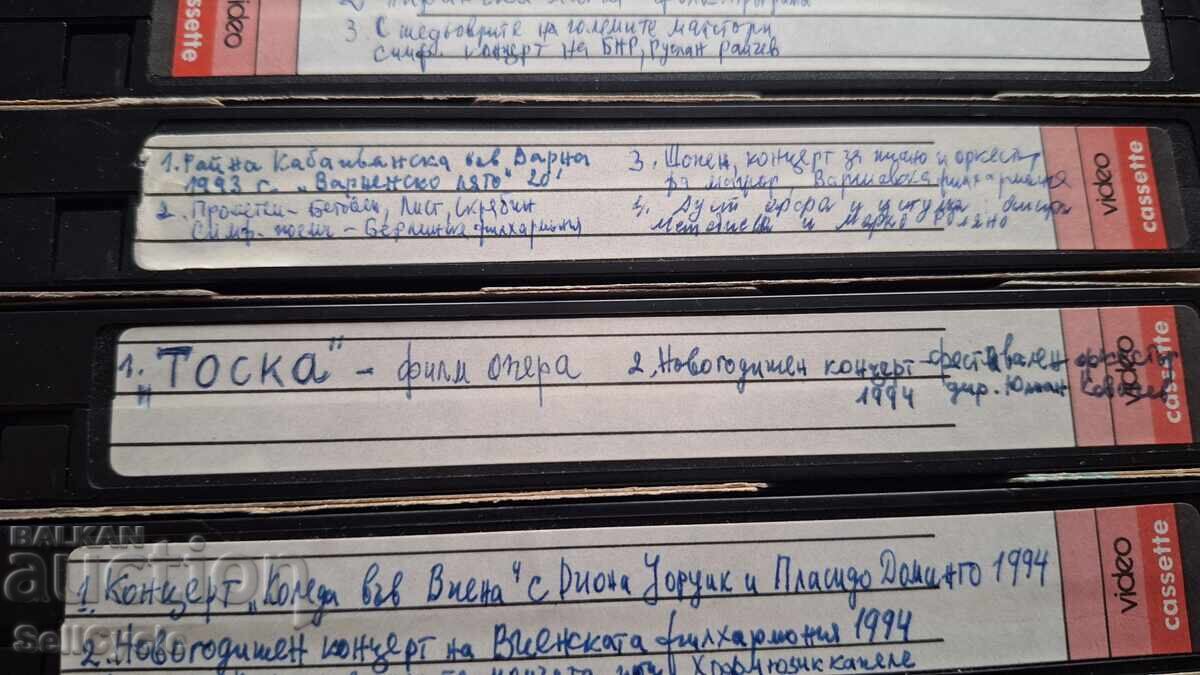 video
cassette
3. С шедьоврите на големите майстори
симф. концерт на БНР, Руслан Райчев
1. Райна Кабаиванска във Варна
1993 г. "Варненско лято"
2. Прометей - Бетовен, Лист, Скрябин
Симф. поеми - Берлинска филхармония
3. Шопен, концерт за пиано и оркестър
фа мажор, Варшавска филхармония
4. Дует арфа и
и Марко
video
cassette
1. "ТОСКА" - филм опера
2. Новогодишен концерт - фестивален оркестър
1994 дир. Юлиан Ковачев
video
cassette
1. Концерт "Коледа във Виена" с Диона Уоруик и Пласидо Доминго 1994
2. Новогодишен концерт на Виенската филхармония 1994
video
cassette
BALKAN
auction